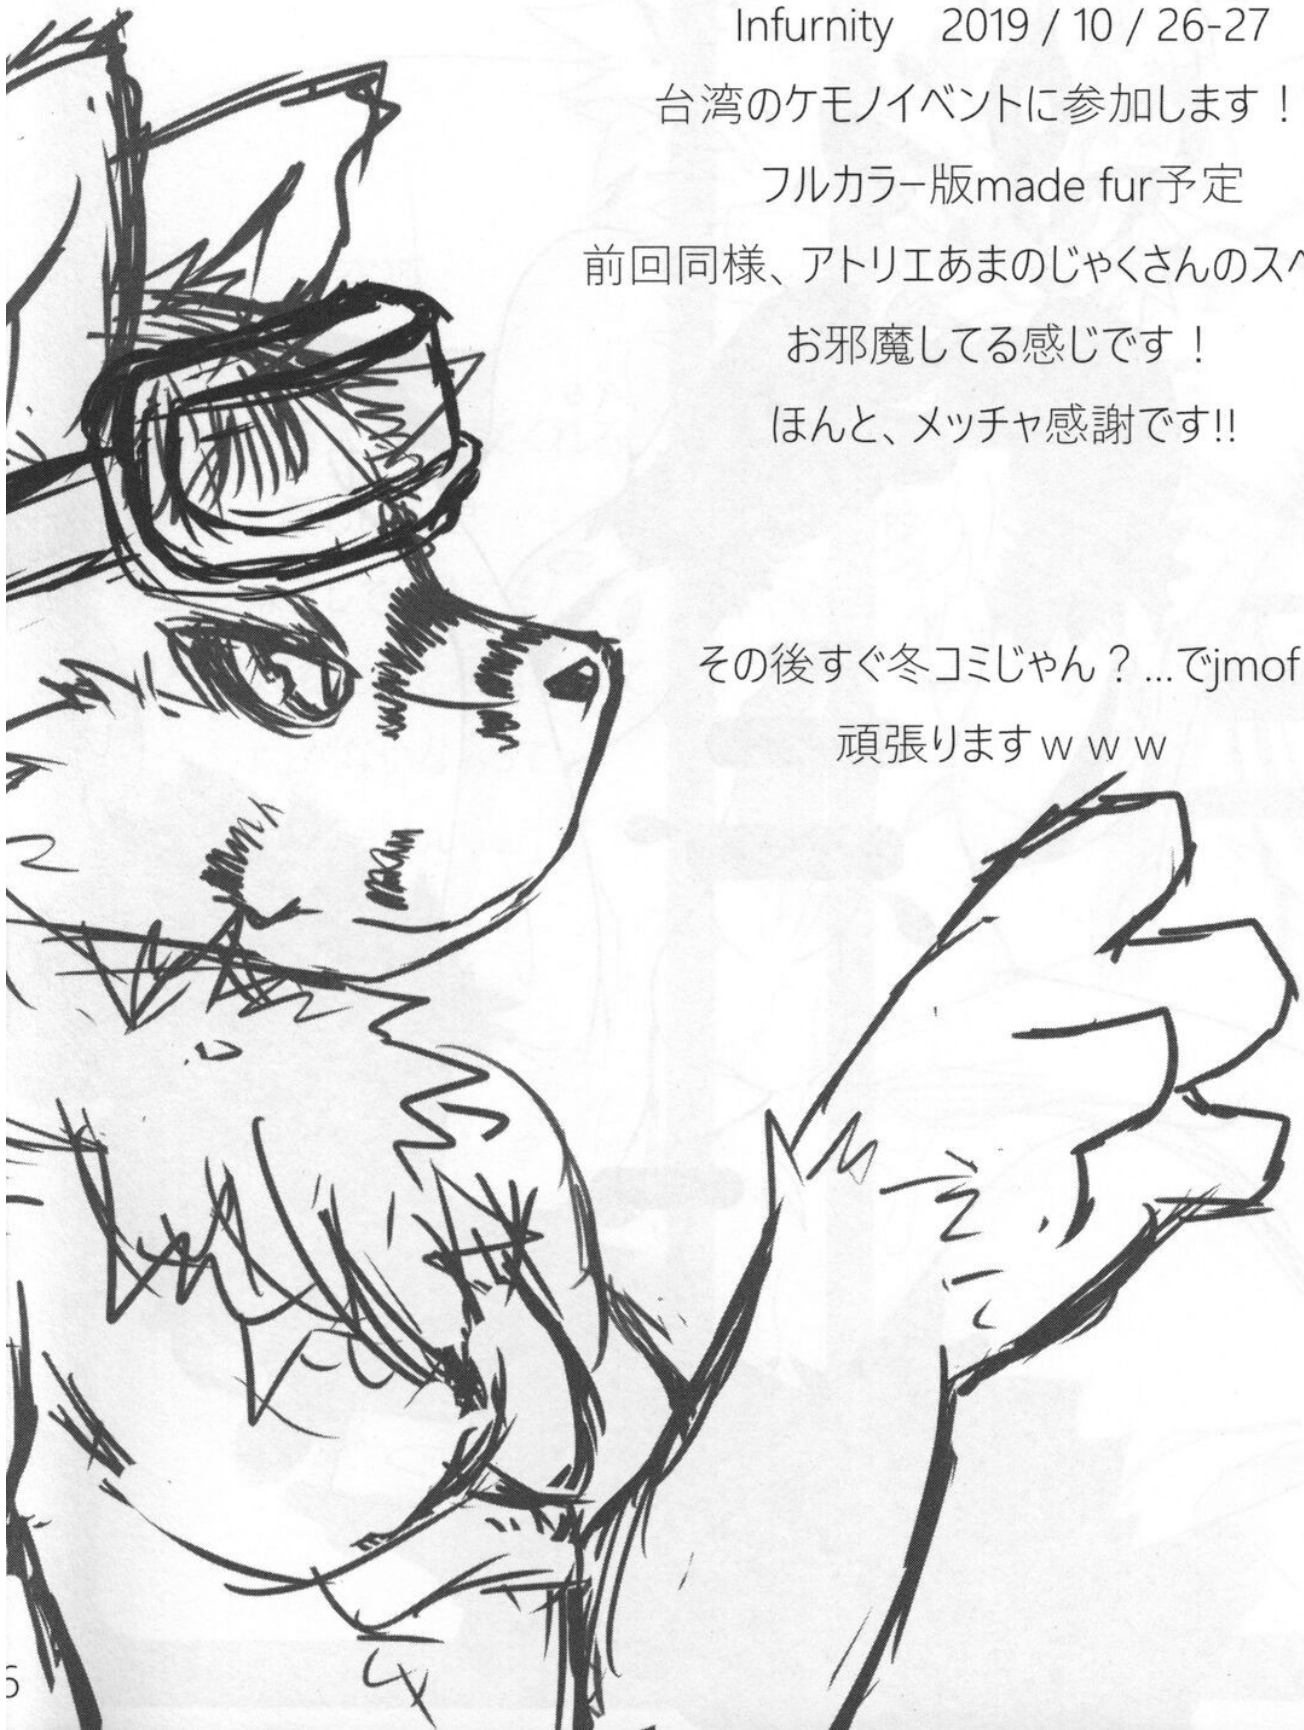 Infurnity 2019 / 10 / 26-27
台湾のケモノイベントに参加します！
フルカラー版made fur予定
前回同様、アトリエあまのじゃくさんのスペ
お邪魔してる感じです！
ほんと、メッチャ感謝です!!
その後すぐ冬コミじゃん？...でjmof
頑張りますｗｗｗ